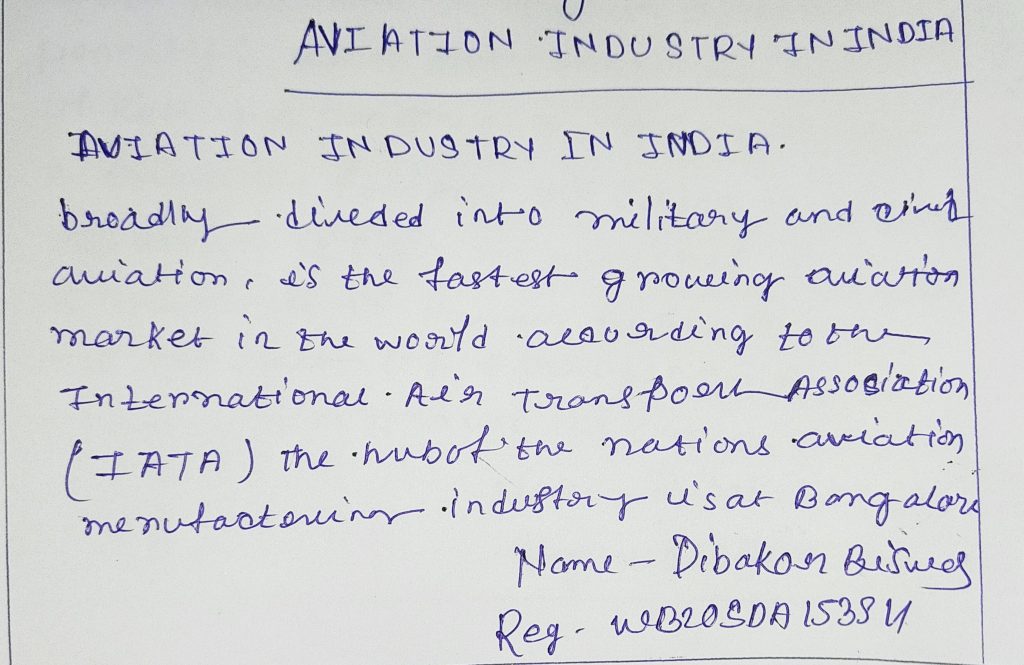 AVIATION INDUSTRY IN INDIA
AVIATION INDUSTRY IN INDIA.
broadly diveded into military and civil
aviation, is the fastest growing aviation
market in the world according to the
International Air Transport Association
(IATA) the hub of the nations aviation
menufacturing industry is at Bangalore
Name - Dibakar Biswas
Reg -